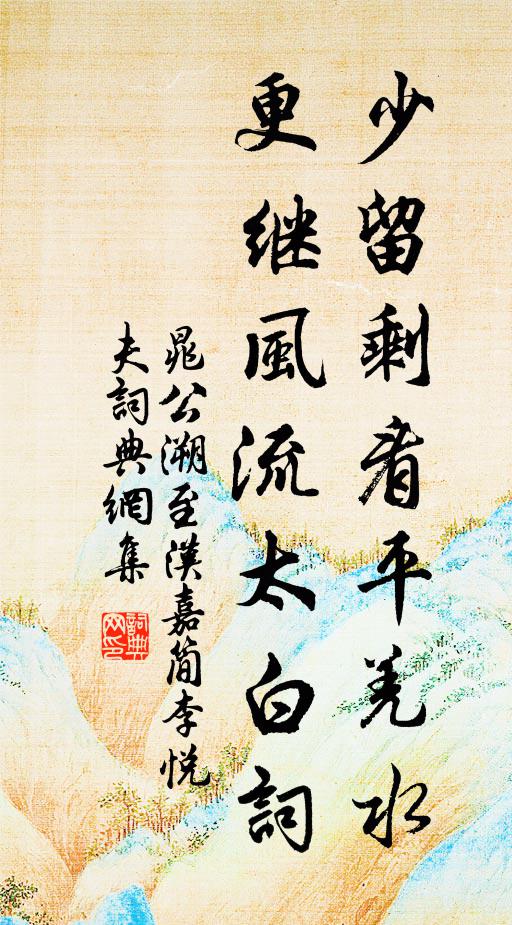 少留剩看平羌水
更继風流太白詞
晁公溯至漢嘉简李悦
夫詞典網集
詞典
网印